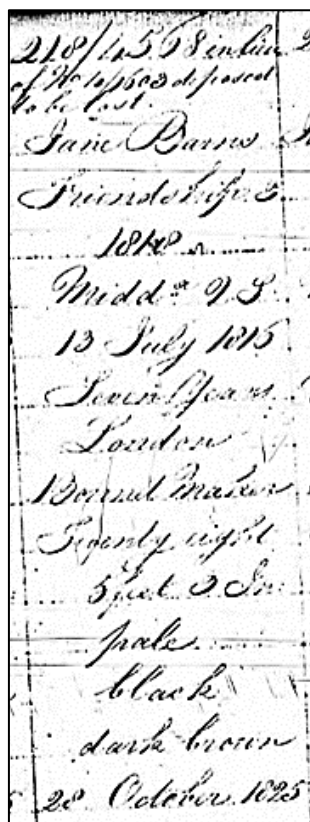 218/4568 in lieu
of No 40/603 deposed
to be lost.
Jane Barns
Friendship 3
1818
Midd.x G S
13 July 1815
Seven Years
London
Bonnet Maker
Twenty eight
5 feet 3 In
pale
black
dark brown
28 October 1825